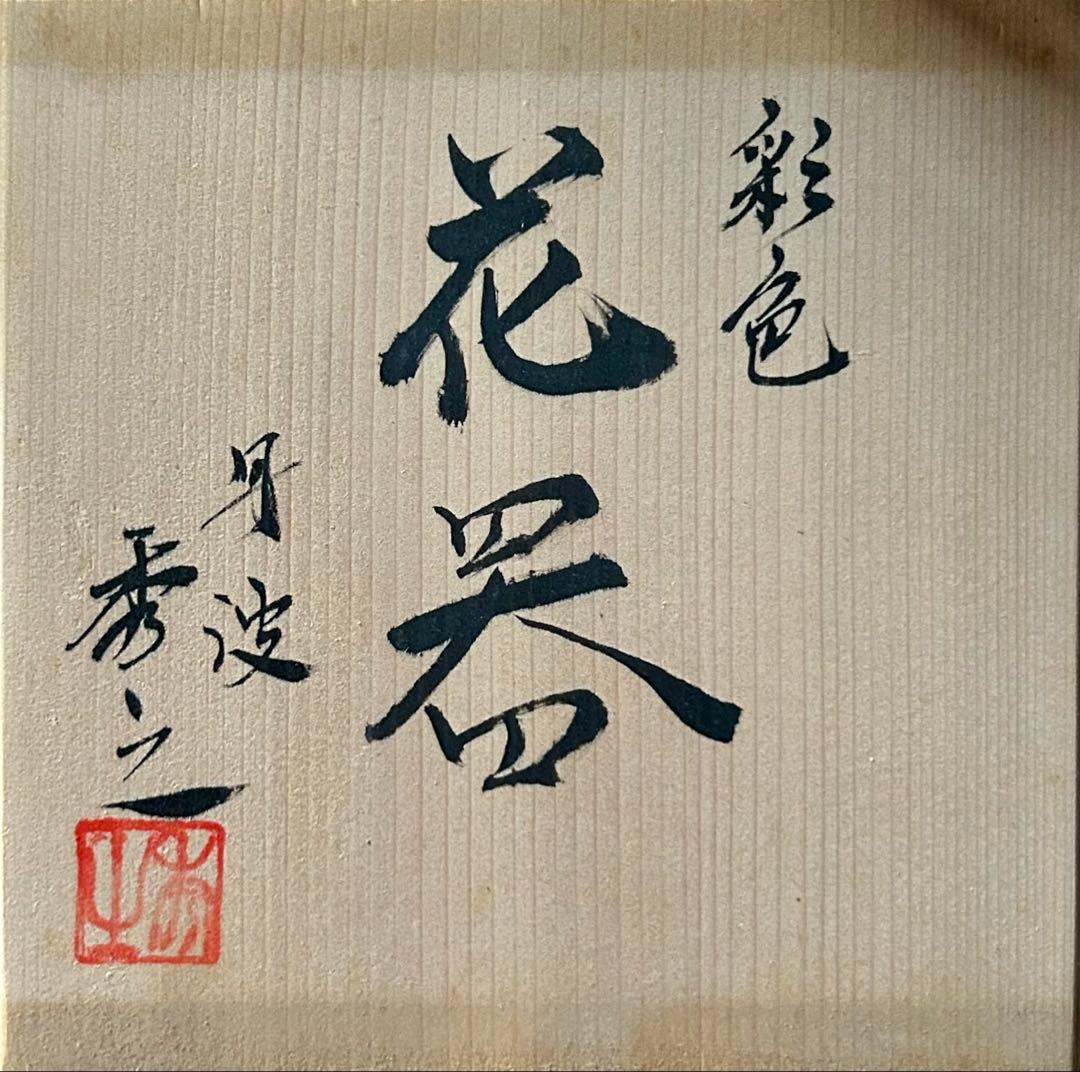 彩色
花器
丹波
秀之
秀之